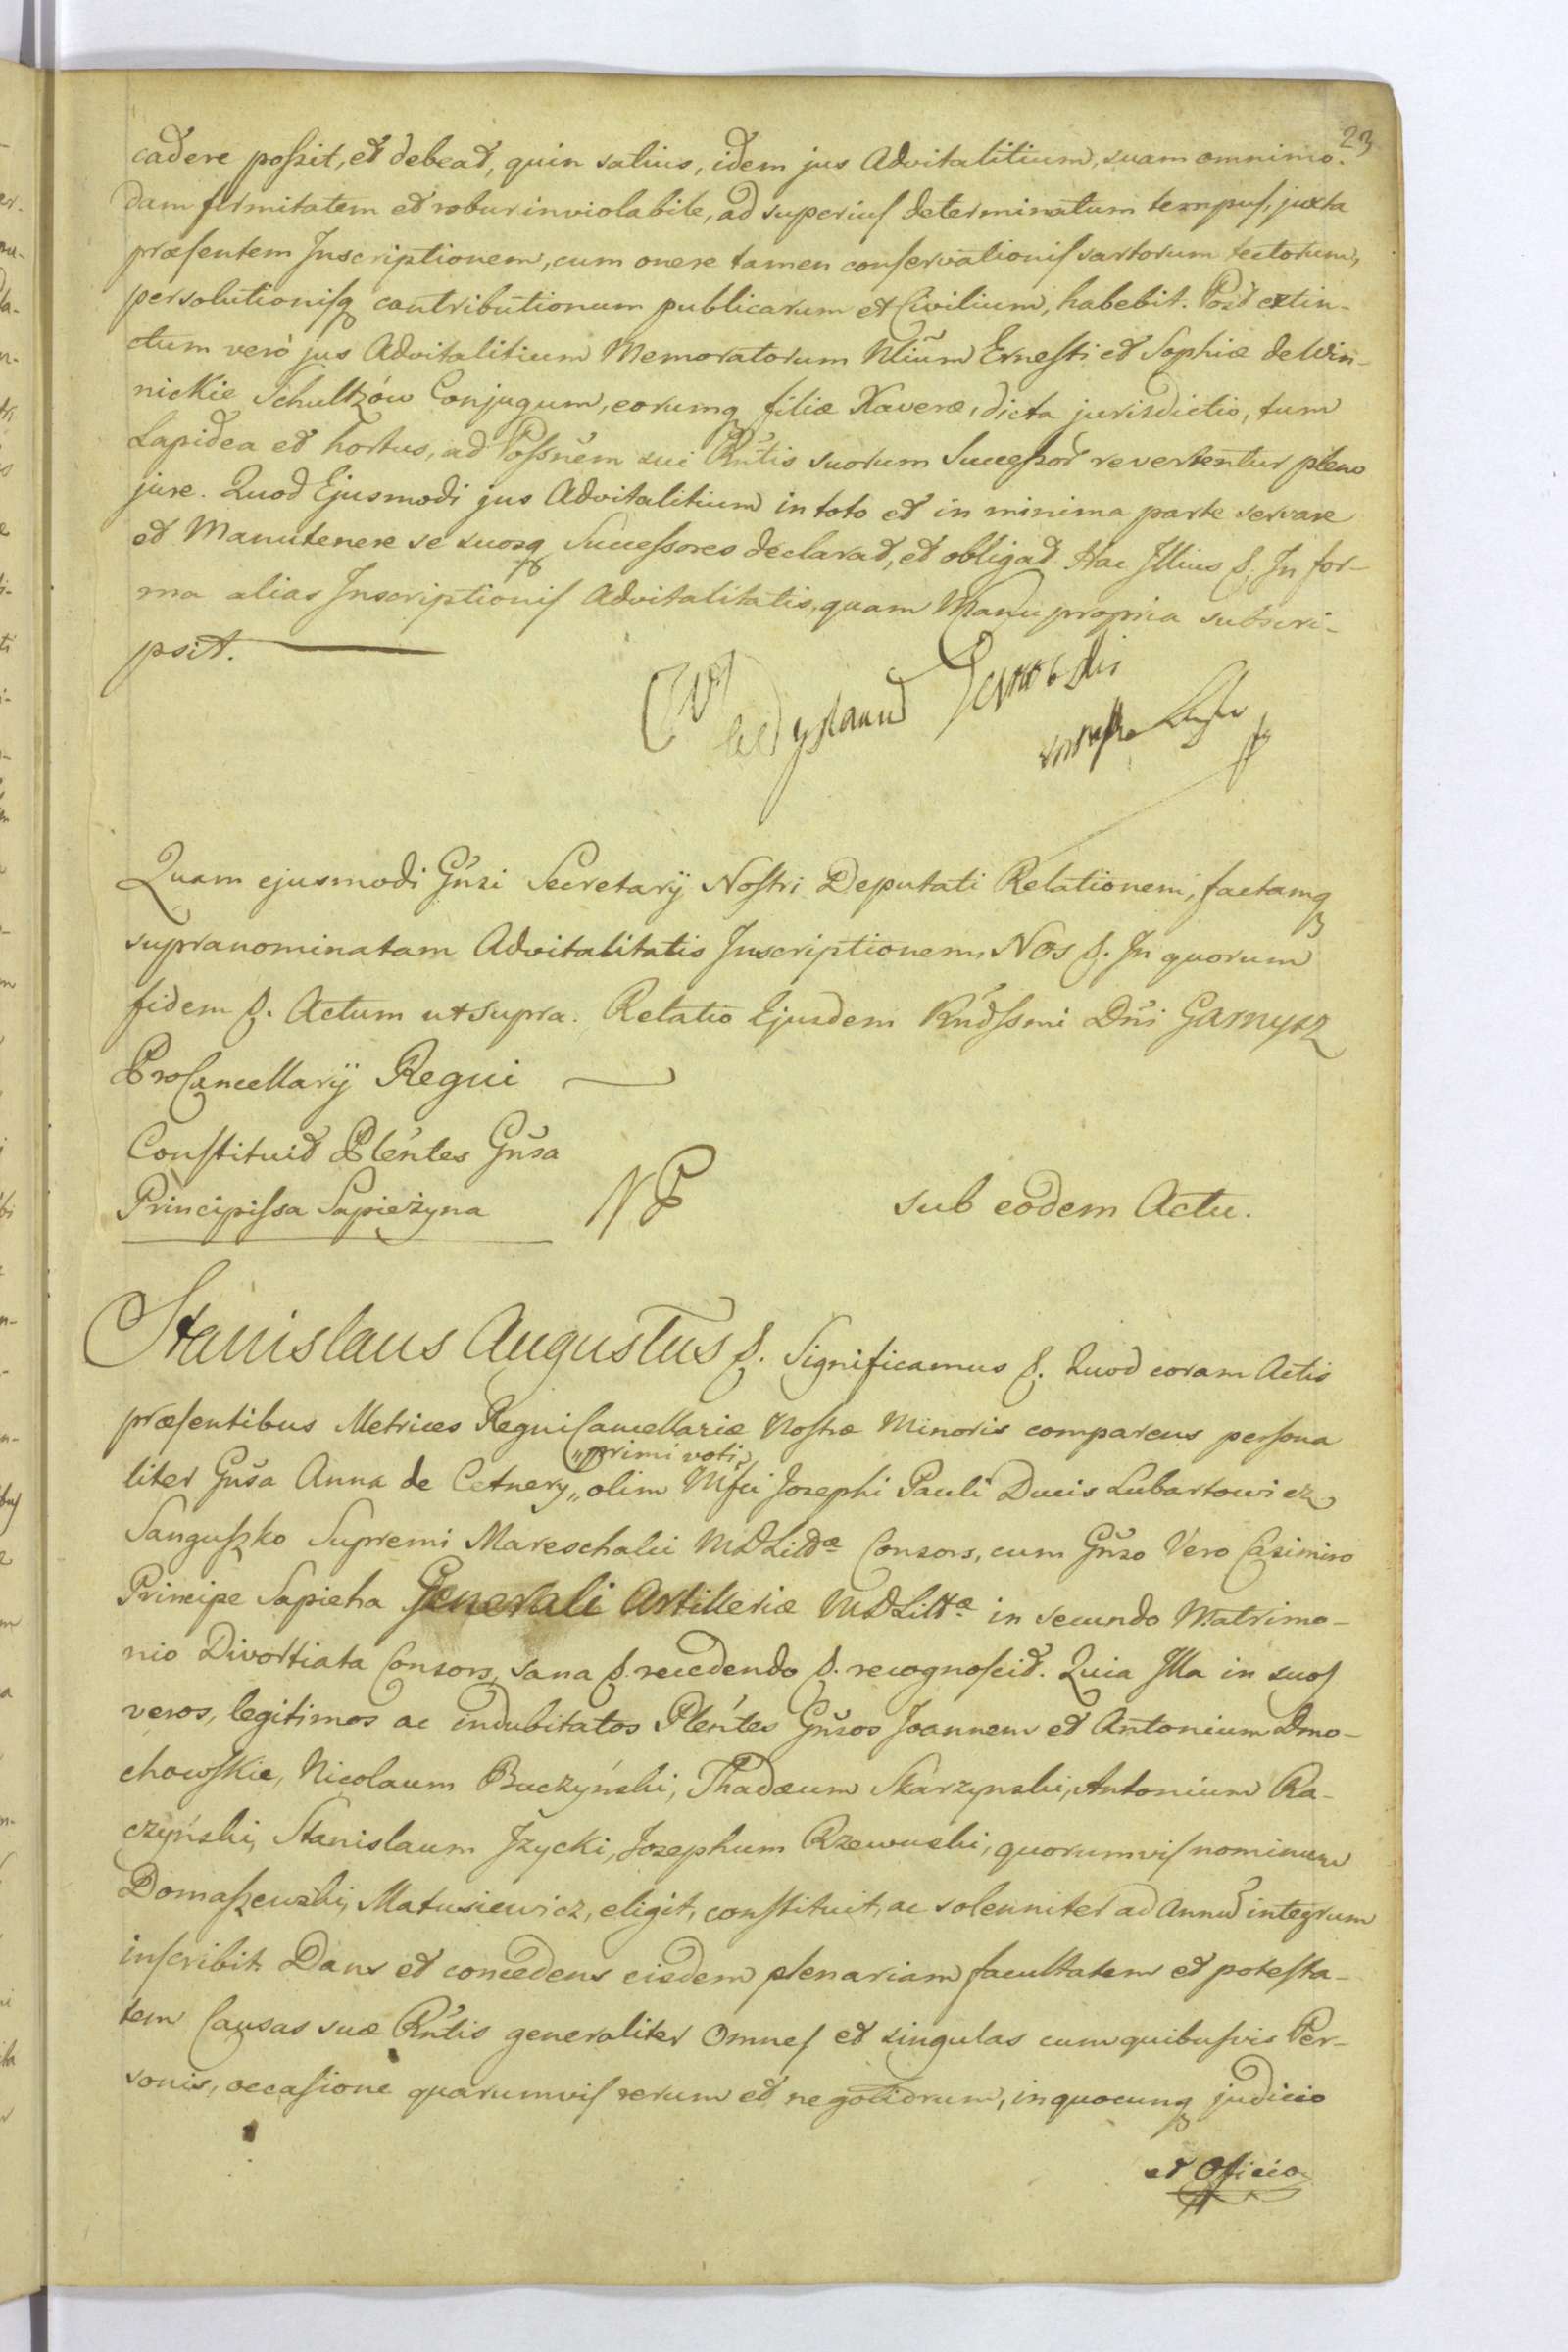 23
cadere possit, et debeat, quin satius, idem jus Advitalitium, suam omnimo-
dam firmitatem et robur inviolabile, ad superius determinatum tempus, juxta
præsentem Inscriptionem, cum onere tamen conservationis sartorum tectorum,
persolutionisq contributionum publicarum et Civilium, habebit. Post extin-
ctum verò jus Advitalitium Memoratorum Nlium Ernesti et Sophiæ de Win-
nickie Schultzów Conjugum, eorumq filiæ Xaveræ, dicta jurisdictio, tum
Lapidea et hortus, ad Possnem sui Rntis suorum Successor revertentur pleno
jure. Quod Ejusmodi jus Advitalitium in toto et in minima parte servare
et Manutenere se suosq Successores declarat, et obligat. Hac Illius &. In for-
ma alias Inscriptionis Advitalitatis, quam Manu propria subscri-
psit.
Quam ejusmodi Gnsi Secretarij Nostri Deputati Relationem, factamq
supranominatam Advitalitatis Inscriptionem, Nos &. In quorum
fidem &. Actum ut supra. Relatio Ejusdem Rndssmi Dni Garnysz
ProCancellarij Regni
Constituit Plentes Gnsa
Principissa Sapieżyna NP sub eodem Actu.
Stanislaus Augustus &. Significamus &. Quod coram Actis
præsentibus Metrices Regni Cancellariæ Nostræ Minoris comparens persona
„primi voti„
liter Gnsa Anna de Cetnery „ olim Mfci Josephi Pauli Ducis Lubartowicz
Sanguszko Supremi Mareschalci MDLitdæ Consors, cum Gnso Vero Casimiro
Principe Sapieha Generali Artilleriæ MDLittæ in secundo Matrimo-
nio Divortiata Consors, sana &. recedendo &. recognoscit. Quia Illa in suos
veros, legitimos ac indubitatos Plentes Gnsos Joannem et Antonium Dmo-
chowskie, Nicolaum Buczyński, Thadæum Skarzynski, Antonium Ra-
czyński, Stanislaum Jzycki, Josephum Rzewuski, quorumvis nominum
Domaszewski, Matusiewicz, eligit, constituit, ac solenniter ad Annu integrum
inscribit. Dans et concedens eisdem plenariam facultatem et potesta-
tem Causas suæ Rntis generaliter Omnes et singulas cum quibusvis Per-
sonis, occasione quarumvis rerum et negotiorum, in quocunq judicio
et Oficio